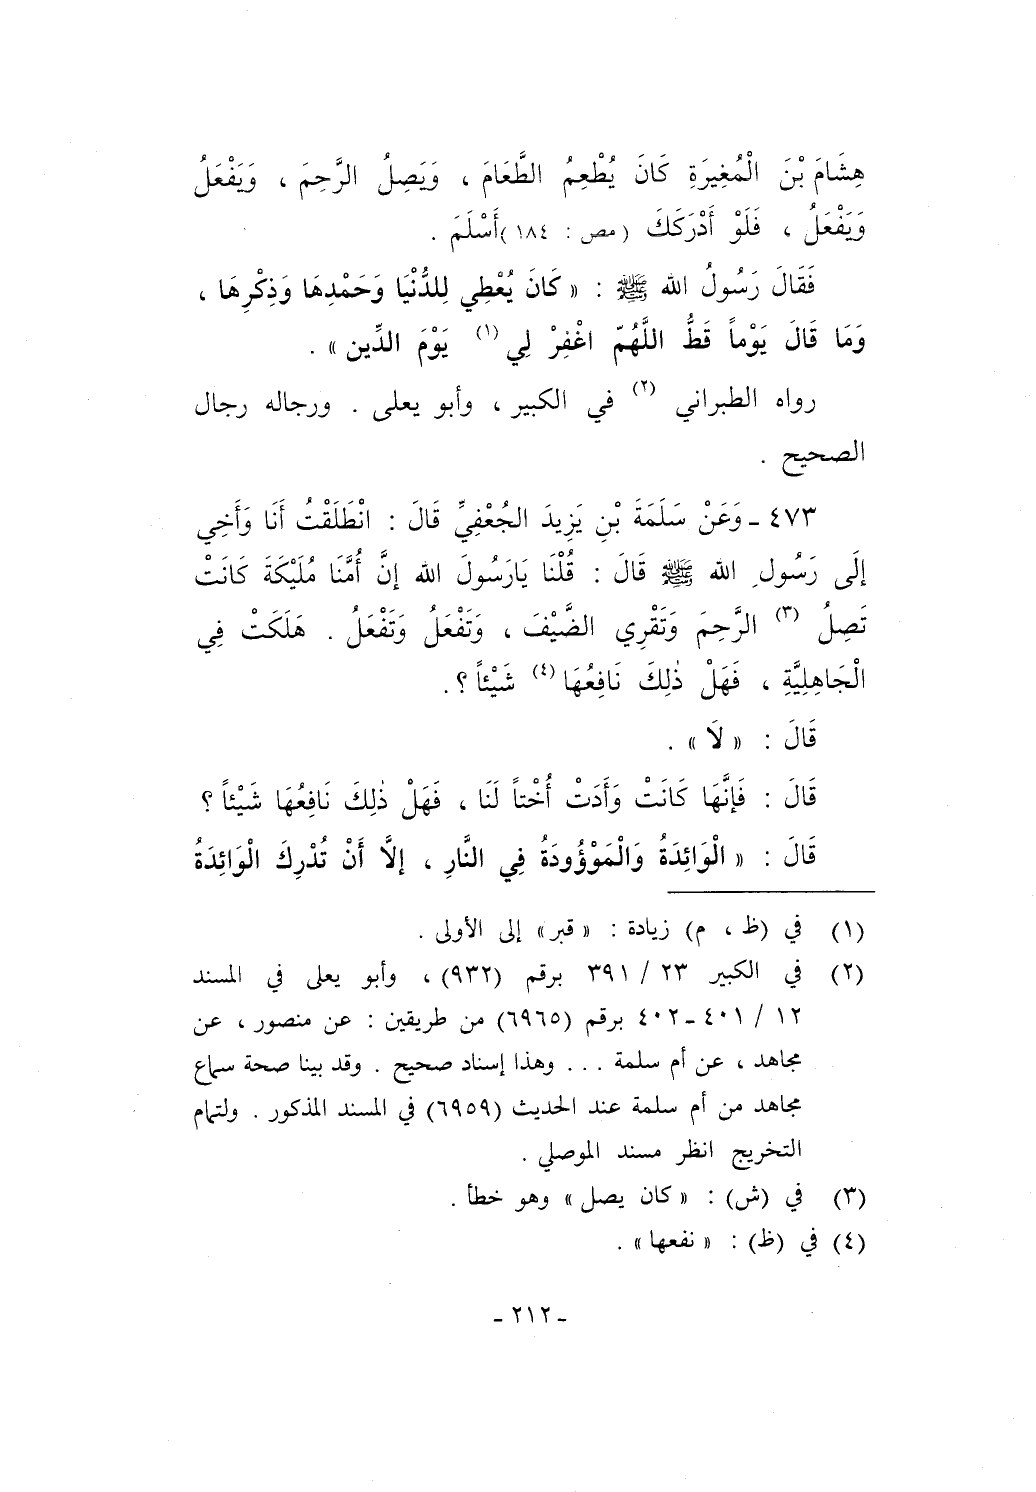 هِشَامَ بْنَ الْمُغِيرَةِ كَانَ يُطْعِمُ الطَّعَامَ ، وَيَصِلُ الرَّحِمَ ، وَيَفْعَلُ
وَيَفْعَلُ ، فَلَوْ أَدْرَكَكَ (مص : ١٨٤) أَسْلَمَ .
فَقَالَ رَسُولُ الله ﷺ : « كَانَ يُعْطِي لِلدُّنْيَا وَحَمْدِهَا وَذِكْرِهَا ،
وَمَا قَالَ يَوْماً قَطُّ اللَّهُمّ اغْفِرْ لِي (١) يَوْمَ الدِّين » .
رواه الطبراني (٢) في الكبير ، وأبو يعلى . ورجاله رجال
الصحيح .
٤٧٣ ـ وَعَنْ سَلَمَةَ بْنِ يَزِيدَ الجُعْفِيِّ قَالَ : انْطَلَقْتُ أَنَا وَأَخِي
إِلَى رَسُولِ الله ﷺ قَالَ : قُلْنَا يَارَسُولَ الله إِنَّ أُمَّنَا مُلَيْكَةَ كَانَتْ
تَصِلُ (٣) الرَّحِمَ وَتَقْرِي الضَّيْفَ ، وَتَفْعَلُ وَتَفْعَلُ . هَلَكَتْ فِي
الْجَاهِلِيَّةِ ، فَهَلْ ذٰلِكَ نَافِعُهَا (٤) شَيْئاً ؟ .
قَالَ : « لَا » .
قَالَ : فَإِنَّهَا كَانَتْ وَأَدَتْ أُخْتاً لَنَا ، فَهَلْ ذٰلِكَ نَافِعُهَا شَيْئاً ؟
قَالَ : « الْوَائِدَةُ وَالْمَوْؤُودَةُ فِي النَّارِ ، إِلَّا أَنْ تُدْرِكَ الْوَائِدَةُ
(١) في (ظ ، م) زيادة : « قبر » إلى الأولى .
(٢) في الكبير ٢٣ / ٣٩١ برقم (٩٣٢) ، وأبو يعلى في المسند
١٢ / ٤٠١ ـ ٤٠٢ برقم (٦٩٦٥) من طريقين : عن منصور ، عن
مجاهد ، عن أم سلمة . . . وهذا إسناد صحيح . وقد بينا صحة سماع
مجاهد من أم سلمة عند الحديث (٦٩٥٩) في المسند المذكور . ولتمام
التخريج انظر مسند الموصلي .
(٣) في (ش) : « كان يصل » وهو خطأ .
(٤) في (ظ) : « نفعها » .
ـ ٢١٢ ـ